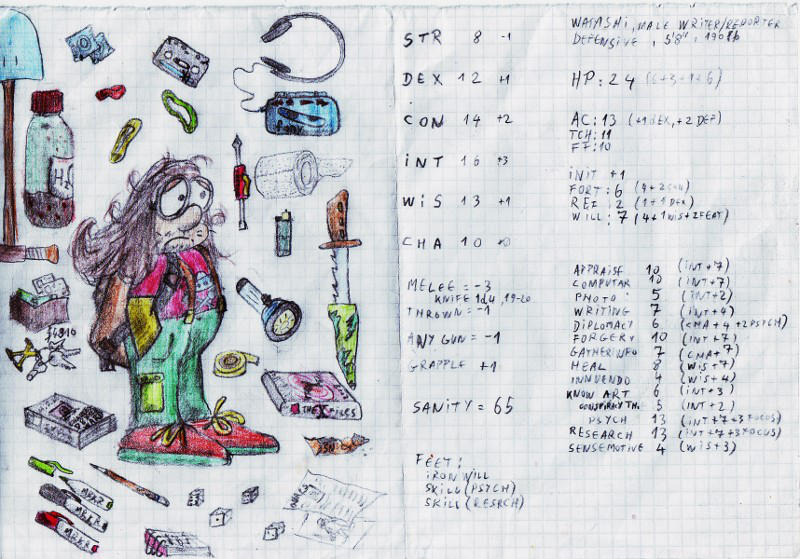 H2O
THE X FILES
MRKR
MRKR
MRKR
STR 8 -1
DEX 12 +1
CON 14 +2
INT 16 +3
WIS 13 +1
CHA 10 +0
MELEE = -3
KNIFE 1d4, 19-20
THROWN = -1
ANY GUN = -1
GRAPPLE +1
SANITY = 65
FEET:
IRON WILL
SKILL (PSYCH)
SKILL (RESRCH)
WATASHI, MALE WRITER/REPORTER
DEFENSIVE, 5'8", 190lb
HP: 24 (6+3+1+6)
AC: 13 (+1 DEX, +2 DEF)
TCH: 11
FF: 10
INIT +1
FORT: 6 (4+2CON)
REF: 2 (1+1DEX)
WILL: 7 (4+1WIS+2FEAT)
APPRAISE 10 (INT+7)
COMPUTAR 10 (INT+7)
PHOTO 5 (INT+2)
WRITING 7 (INT+4)
DIPLOMACY 6 (CHA+4+2PSYCH)
FORGERY 10 (INT+7)
GATHERINFO 7 (CHA+7)
HEAL 8 (WIS+7)
INNUENDO 4 (WIS+4)
KNOW ART 6 (INT+3)
CONSPIRACY TH. 5 (INT+2)
PSYCH 13 (INT+7+3FOCUS)
RESEARCH 13 (INT+7+3FOCUS)
SENSEMOTIVE 4 (WIS+3)